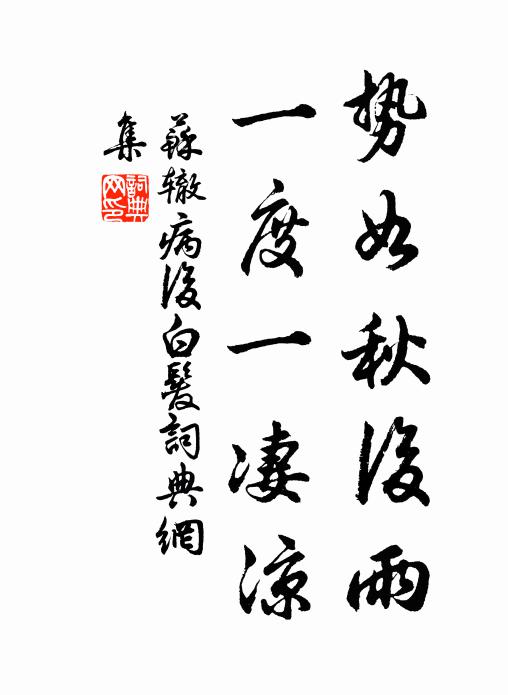 勢如秋後雨
一度一凄涼
蘇辙病後白髮詞典網
集
詞典
网印